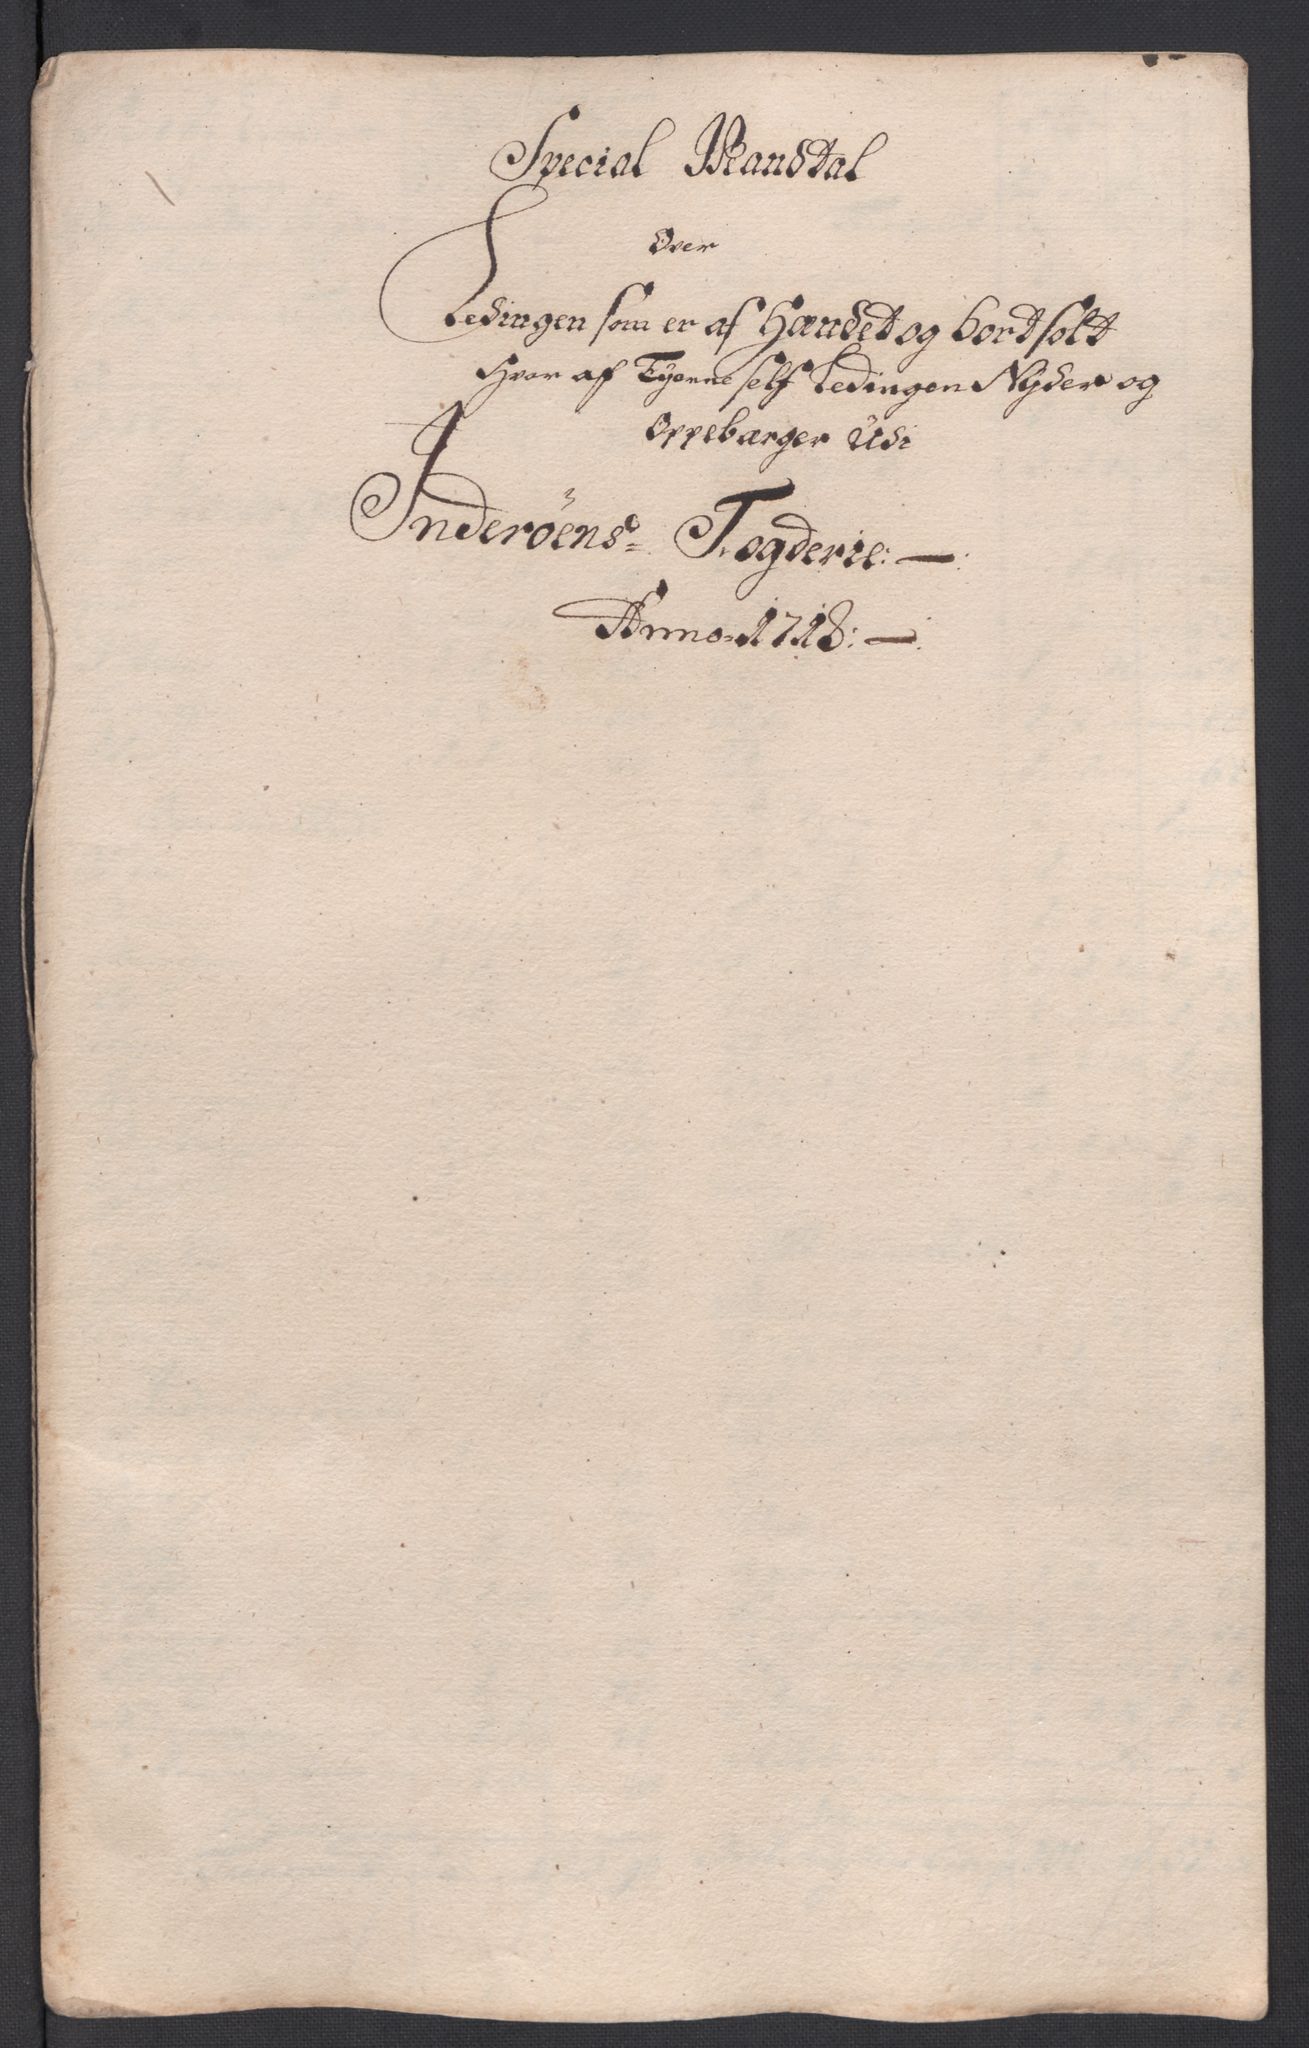 Special Mandtal
Over
Ledingen som er af Hændet og bortsolt
Hvor af Eyerne self Ledingen Nyder og
Oppebærger Udi
Inderöens= Fogderie:—:
Anno=1718:—: